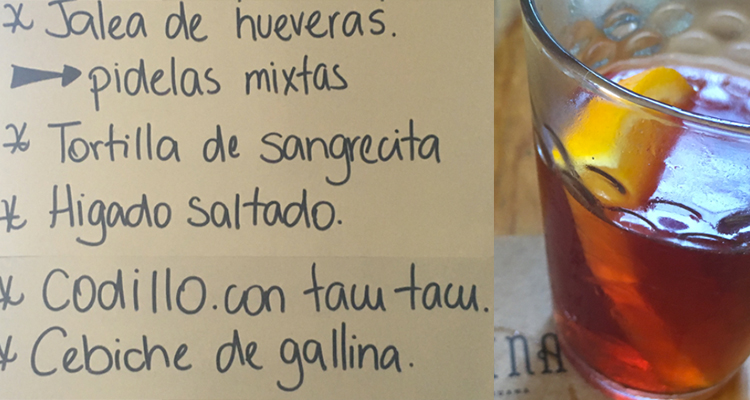 * Jalea de hueveras.
→ pidelas mixtas
* Tortilla de sangrecita
* Higado saltado.
* Codillo.con tacu-tacu.
* Cebiche de gallina.